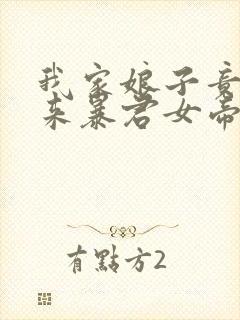 我家娘子竟
来暴君女帝
有點方2